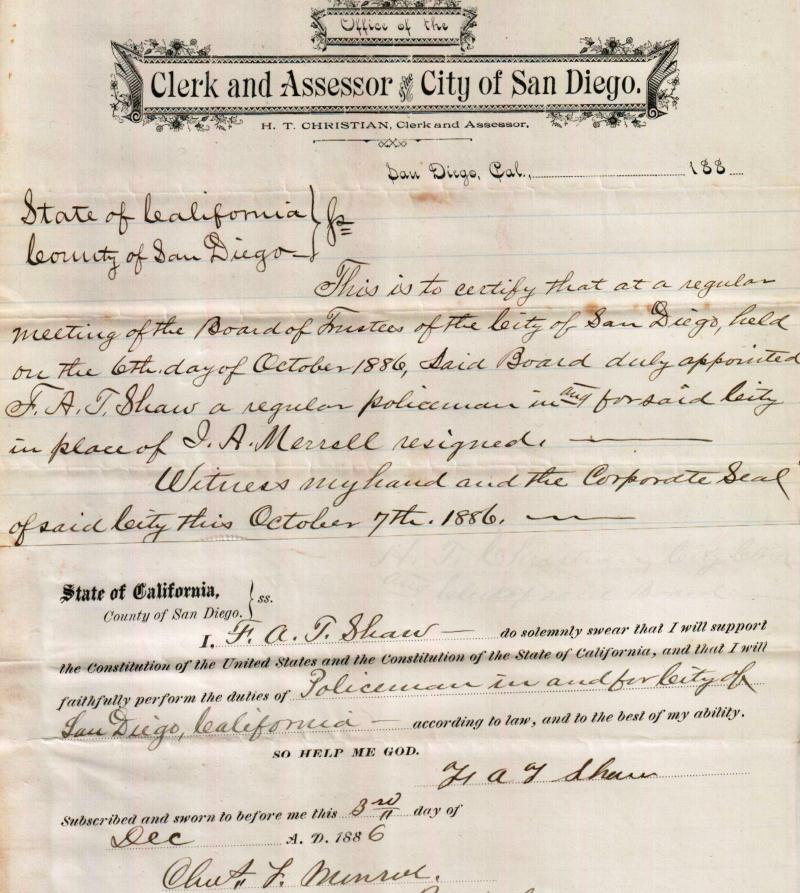 Office of the
Clerk and Assessor City of San Diego.
H. T. CHRISTIAN, Clerk and Assessor.
San Diego, Cal., 188
State of California } ss
County of San Diego
This is to certify that at a regular
meeting of the Board of Trustees of the City of San Diego, held
on the 6th day of October 1886, Said Board duly appointed
F. A. T. Shaw a regular policeman in and for said City
in place of J. A. Merrell resigned.
Witness my hand and the Corporate Seal
of said City this October 7th. 1886.
State of California, } ss.
County of San Diego.
I, F. A. T. Shaw do solemnly swear that I will support
the Constitution of the United States and the Constitution of the State of California, and that I will
faithfully perform the duties of Policeman in and for City of
San Diego, California according to law, and to the best of my ability.
SO HELP ME GOD.
F A T Shaw
Subscribed and sworn to before me this 3rd day of
Dec A. D. 1886
Monroe.